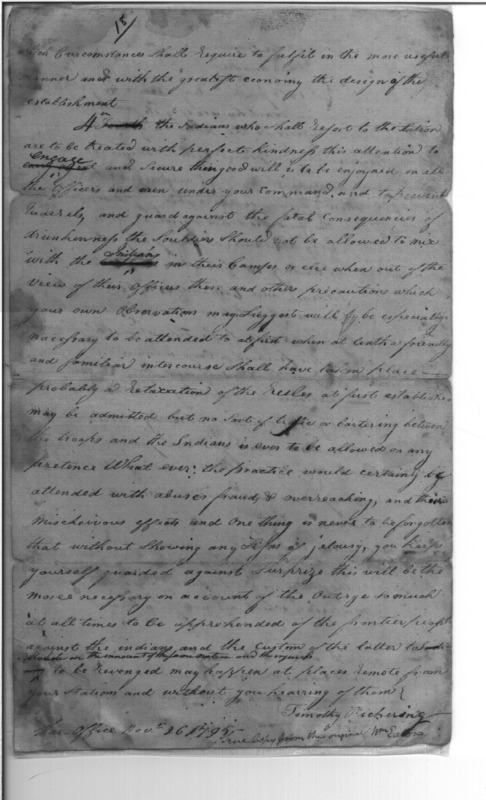 18/
Circumstances shall require to fulfil in the most useful
manner and with the greatest economy the design of the
establishment
4th the Indians who shall resort to the Station
are to be treated with perfect kindness this attention to
engage and secure their good will is to be enjoyed on all
the Officers and even under your Command, and to prevent
and guard against the fatal Consequences of
drunkenness the Souldiers should not be allowed to mix
with the Indians in their Camps or else when out of the
view of their officers these and other precautions which
your own Observations may Suggest will be especially
necessary to be attended to at first when at lenth a friendly
and familiar intercourse shall have taken place
probably a Relaxation of the Rules at first established
may be admitted but no Sort of or bartering between
the troops and the Indians is ever to be allowed on any
pretence What ever: the practice would certainly be
attended with abuses frauds & overreaching, and their
Mischeivous effects and One thing is never to be forgotten
that without Showing any Signs of jelousy, you keep
yourself guarded against Surprize this will be the
more necessary on account of the Outrage so much
at all times to be apprehended of the frontier people
against the indians and the Custom of the latter to
on the innocent of the same nation and the injuries
to be revenged may happen at places remote from
your Station and without you hearing of them
Timothy Pickering
War Office Nov. 26 1795
true Copy from the original Wm Eaton